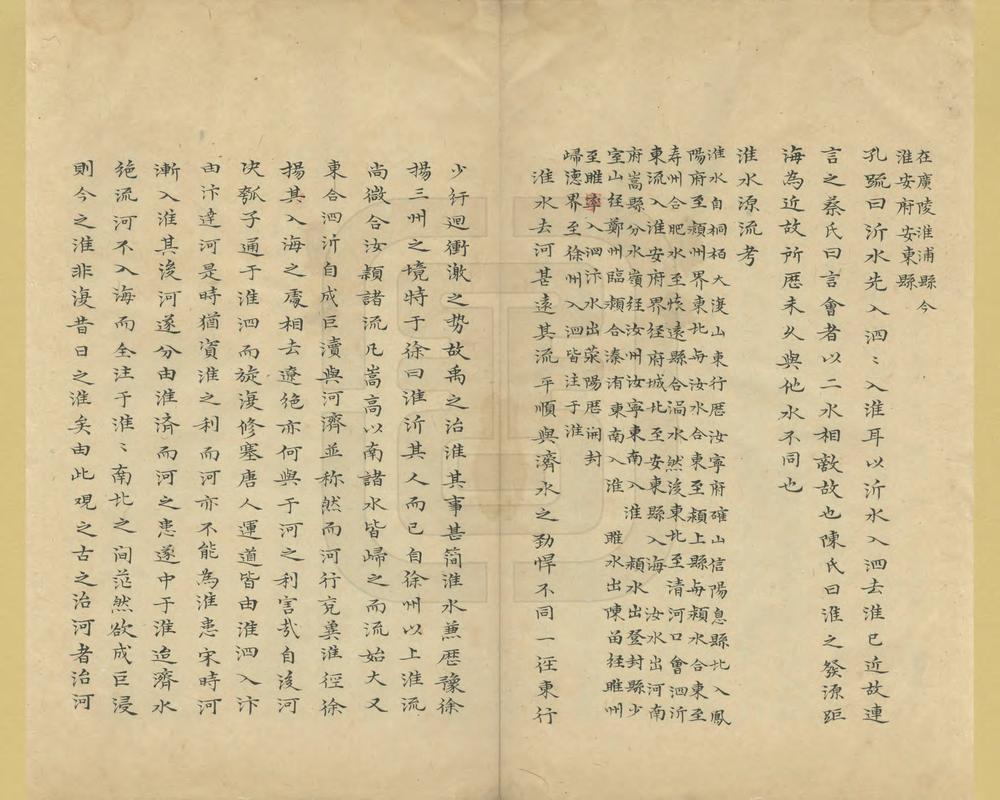 在廣陵淮浦縣今
淮安府安東縣
孔䟽曰沂水先入泗〻入淮耳以沂水入泗去淮已近故連
言之蔡氏曰言會者以二水相敵故也陳氏曰淮之發源距
海為近故所歴未久與他水不同也
淮水源流考
淮水自桐栢大復山東行歴汝寧府確山信陽息縣北入鳳
陽府至潁州界東北与汝水合東至潁上縣与潁水合東至
壽州合肥水至懐遠縣合渦水然後東北至清河口會泗沂
東流入淮安府界径府城北至安東縣入海 汝水出河南
府嵩縣分水嶺径汝州汝寧東南入淮 潁水出登封縣少
室山径鄭州臨潁合溱洧東南入淮 睢水出陳留径睢州
至睢寧入泗汴水出滎陽歴開封
歸德界至徐州入泗皆注于淮
淮水去河甚遠其流平順與濟水之勁悍不同一徃東行
少紆迴衝激之勢故禹之治淮其事甚简淮水兼歴豫徐
揚三州之境特于徐曰淮沂其人而已自徐州以上淮流
尚微合汝潁諸流凡嵩高以南諸水皆歸之而流始大又
東合泗沂自成巨瀆與河濟並称然而河行兗冀淮徑徐
揚其入海之處相去遼绝亦何與于河之利害㦲自後河
决瓠子通于淮泗而旋復修塞唐人運道皆由淮泗入汴
由汴達河是時猶資淮之利而河亦不能為淮患宋時河
漸入淮其後河遂分由淮済而河之患遂中于淮迨濟水
绝流河不入海而全注于淮〻南北之间茫然欲成巨浸
則今之淮非復昔日之淮矣由此观之古之治河者治河